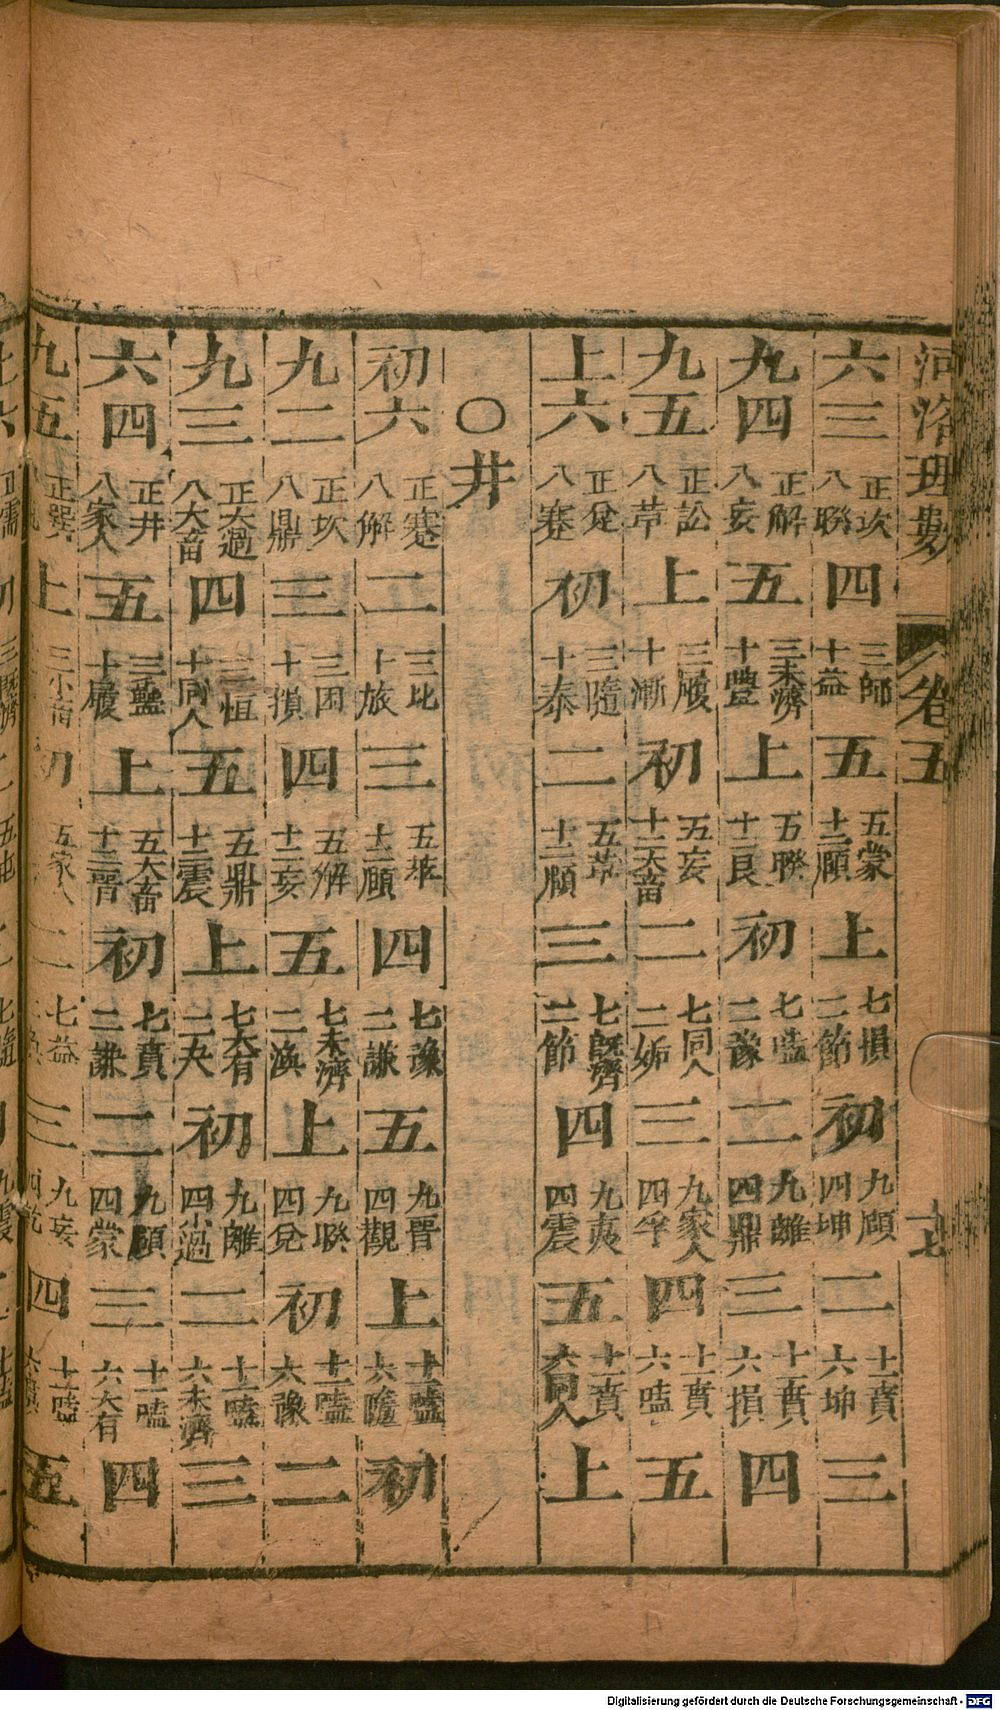 河洛理數 卷五 十七
六三 正坎八睽 四 三師十益 五 五蒙十二頤 上 七損二節 初 九頤四坤 二 十一賁六坤 三
九四 正解八妄 五 三未濟十豐 上 五睽十二艮 初 七嗑二豫 二 九離四鼎 三 十一賁六損 四
九五 正訟八萃 上 三履十漸 初 五妄十二大畜 二 七同人二姤 三 九家人四孚 四 十一賁六嗑 五
上六 正兌八蹇 初 三隨十泰 二 五萃十二頤 三 七既濟二節 四 九夷四震 五 十一賁六同人 上
○井
初六 正蹇八解 二 三比十旅 三 五萃十二頤 四 七豫二謙 五 九晋四觀 上 十一嗑六 初
九二 正坎八鼎 三 三困十損 四 五解十二妄 五 七未濟二渙 上 九睽四兌 初 十一嗑六豫 二
九三 正大過八大畜 四 三恒十同人 五 五鼎十二震 上 七大有二夬 初 九離四小過 二 十一嗑六未濟 三
六四 正井八家人 五 三蠱十履 上 五大畜十二晋 初 七賁二謙 二 九頤四蒙 三 十一嗑六大有 四
九五 正巽 上 三小畜 初 五家人 二 七益 三 九妄四 四 十一嗑六 五
Digitalisierung gefördert durch die Deutsche Forschungsgemeinschaft - DFG